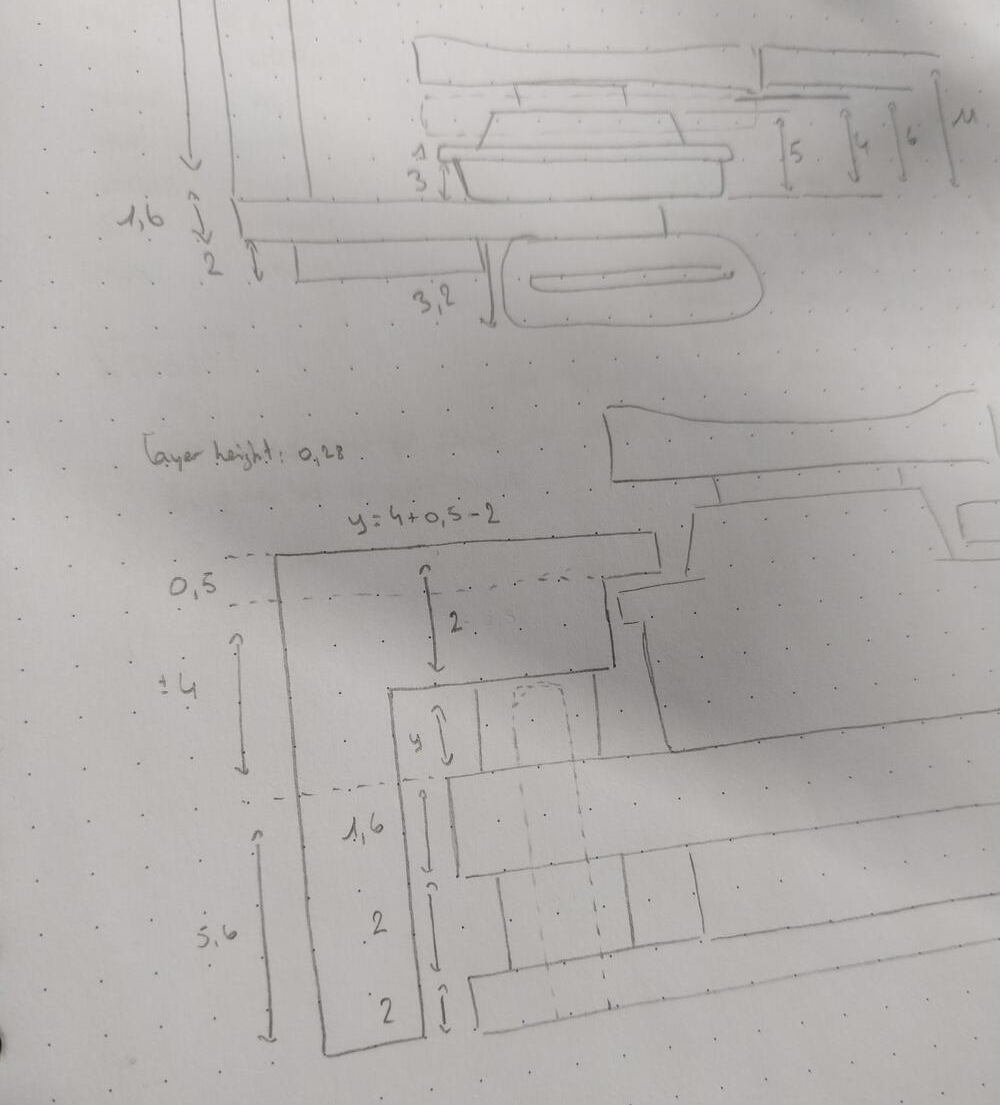 1
3
5
4
6
11
1,6
2
3,2
layer height: 0,28
y = 4+0,5-2
0,5
2
±4
y
1,6
5,6
2
2